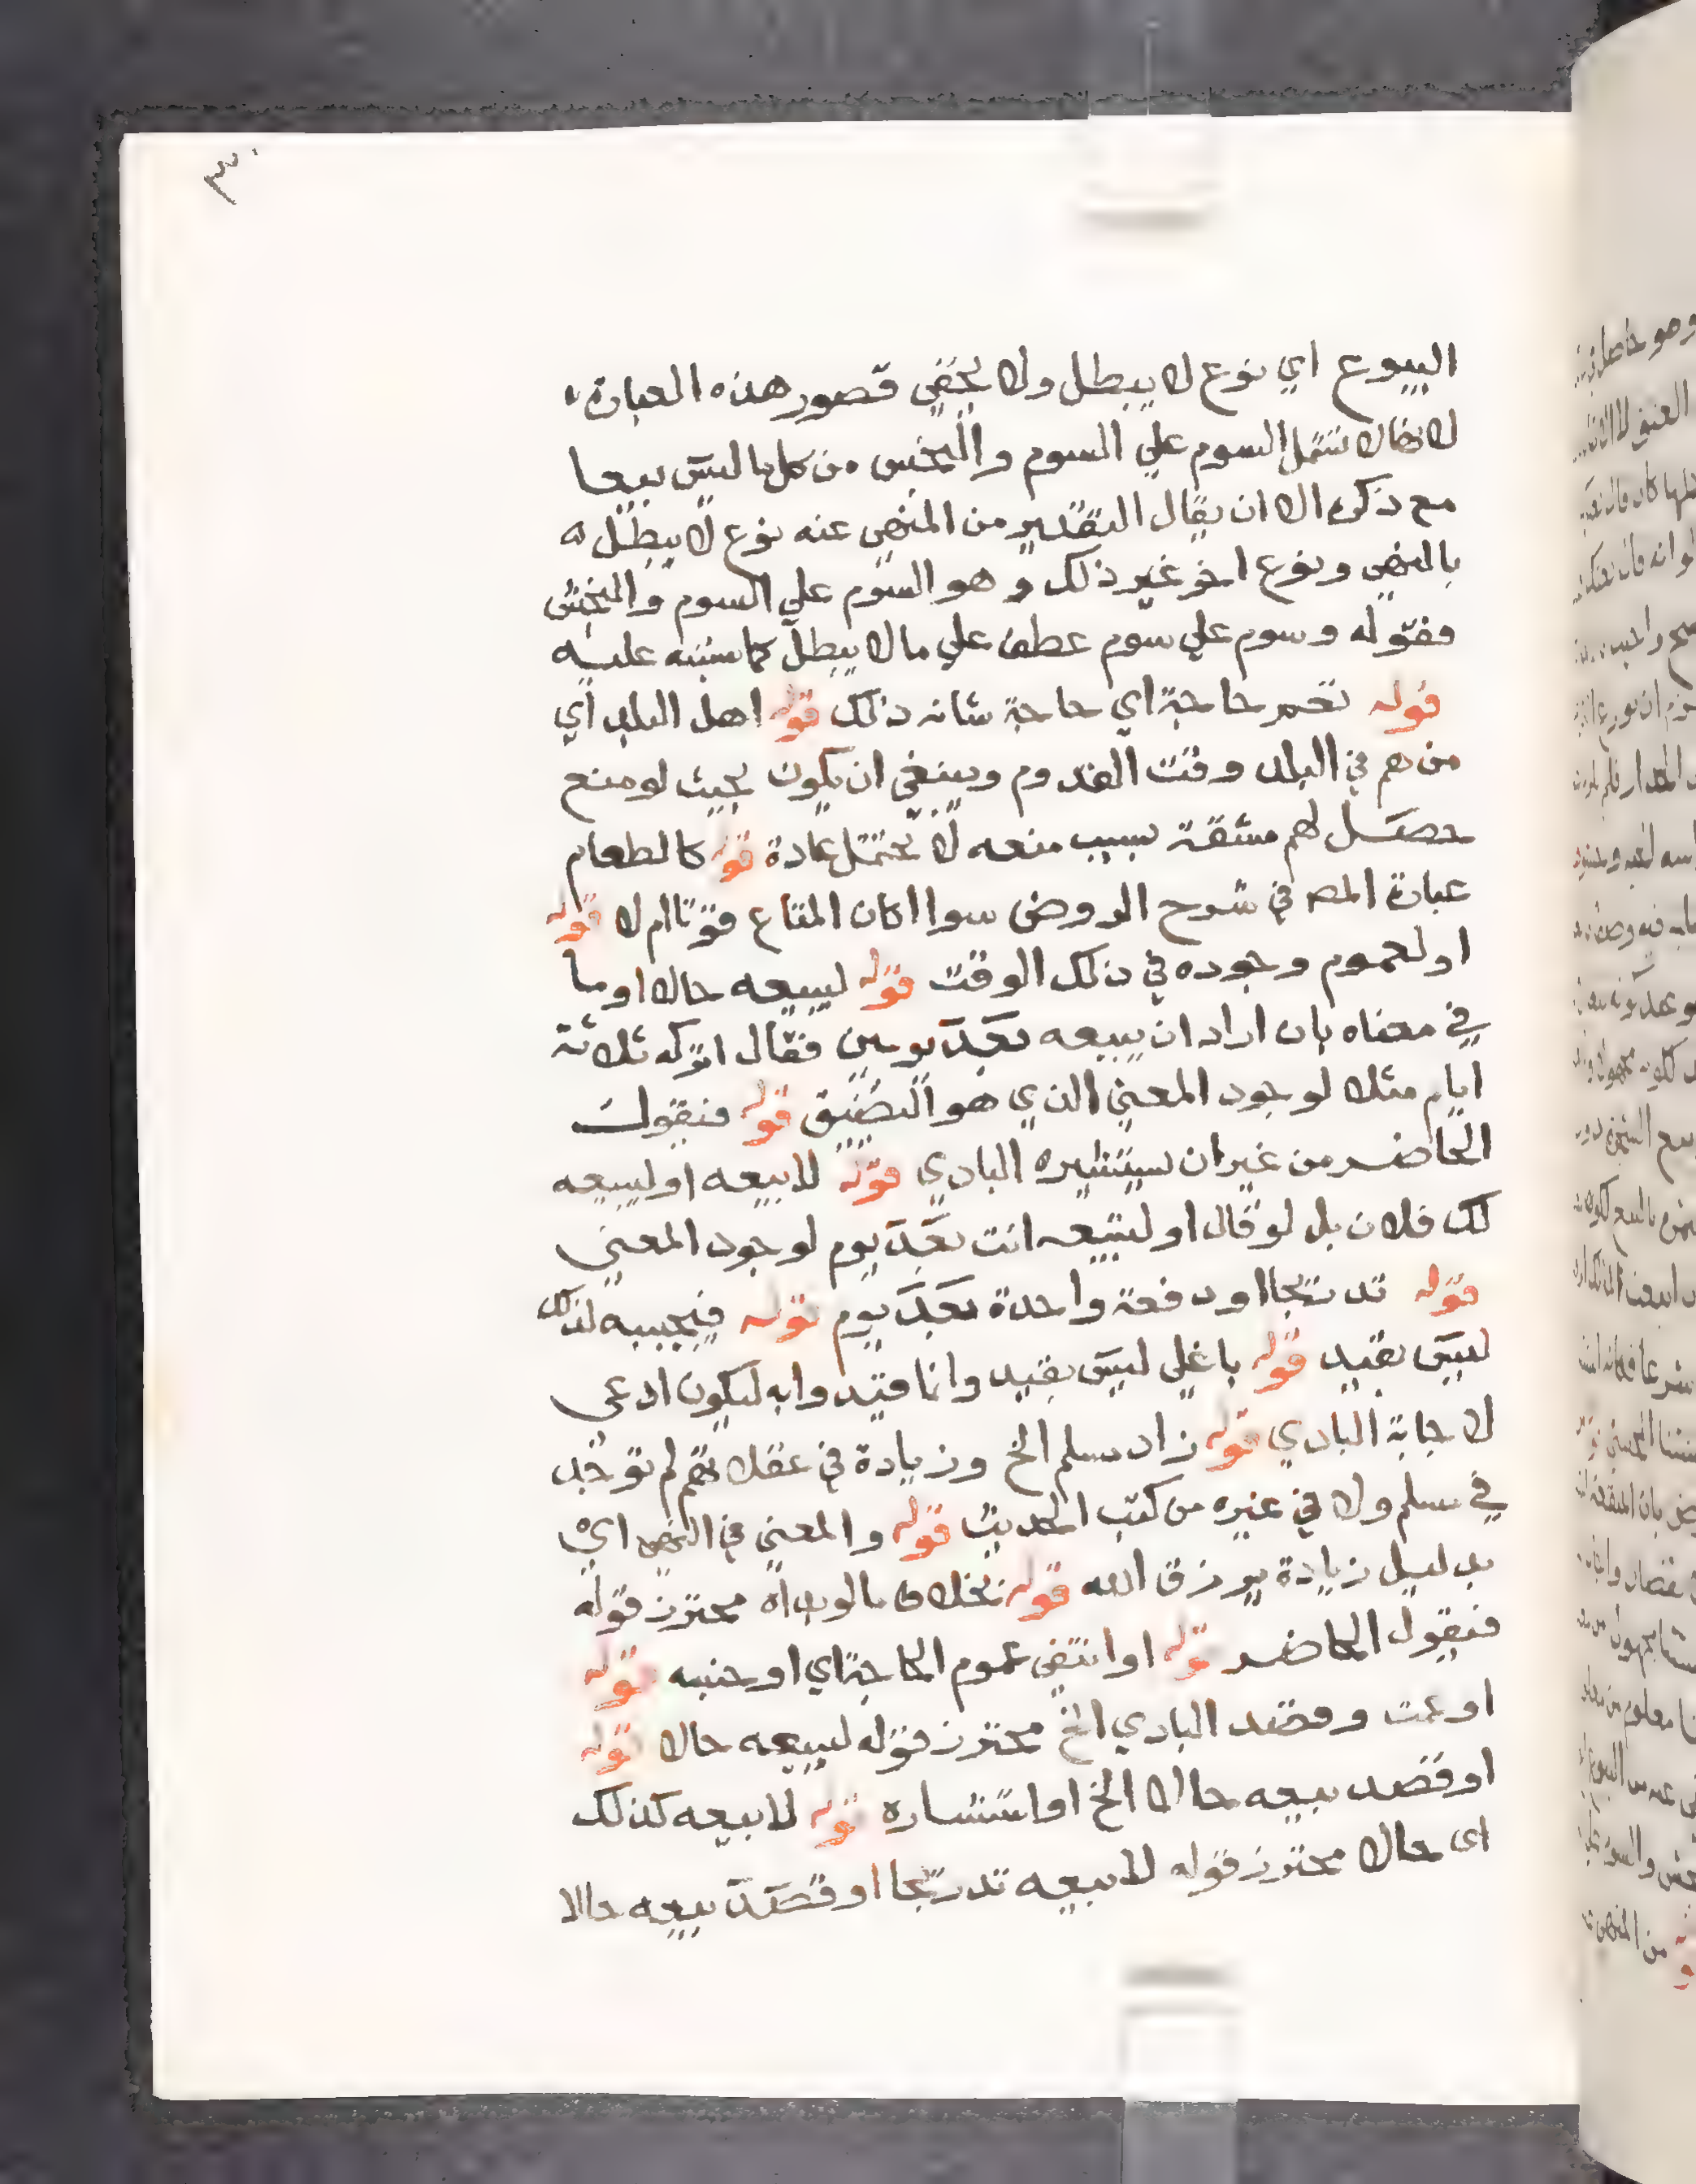 ٣٠
البيوع اي نوع لا يبطل ولا يخفي قصور هذه العبارة
لانها لا تشمل السوم علي السوم والنجش من كل ما ليس بيعا
مع ذكره الا ان يقال التقدير من المنهي عنه نوع لا يبطل
بالنهي ونوع اخر غير ذلك وهو السوم علي السوم والنجش
فقوله وسوم علي سوم عطف علي ما لا يبطل كما سننبه عليه
قوله تعم حاجة اي حاجة شانه ذلك قوله اهل البلد اي
من هم في البلد وقت القدوم وينبغي ان يكون بحيث لو منع
حصل لهم مشقة بسبب منعه لا تحتمل عادة قوله كالطعام
عبارة المص في شرح الروض سواا كان المتاع قوتا ام لا قوله
او لعموم وجوده في ذلك الوقت قوله ليبيعه حالا او ما
في معناه بان اراد ان يبيعه بعد يومين فقال اتركه ثلاثة
ايام مثلا لوجود المعني الذي هو التضييق قوله فيقول
الحاضر من غير ان يستشيره البادي قوله لابيعه او ليبيعه
لك فلان بل لو قال او لتبيعه انت بعد يوم لوجود المعني
قوله تدريجا او دفعة واحدة بعد يوم قوله فيجيبه لذلك
ليس بقيد قوله باغلي ليس بقيد وانما قيدوا به ليكون ادعي
لاجابة البادي قوله زاد مسلم الخ وزيادة في غفلاتهم لم توجد
في مسلم ولا في غيره من كتب الحديث قوله والمعني في النهي اي
بدليل زيادة يرزق الله قوله بخلاف ما لو بداه محترز قوله
فيقول الحاضر قوله او انتفي عموم الحاجة اي او جنسه قوله
او عمت وقصد البادي الخ محترز قوله ليبيعه حالا قوله
او قصد بيعه حالا الخ او استشاره قوله لابيعه كذلك
اي حالا محترز قوله لابيعه تدريجا او قصد بيعه حالا